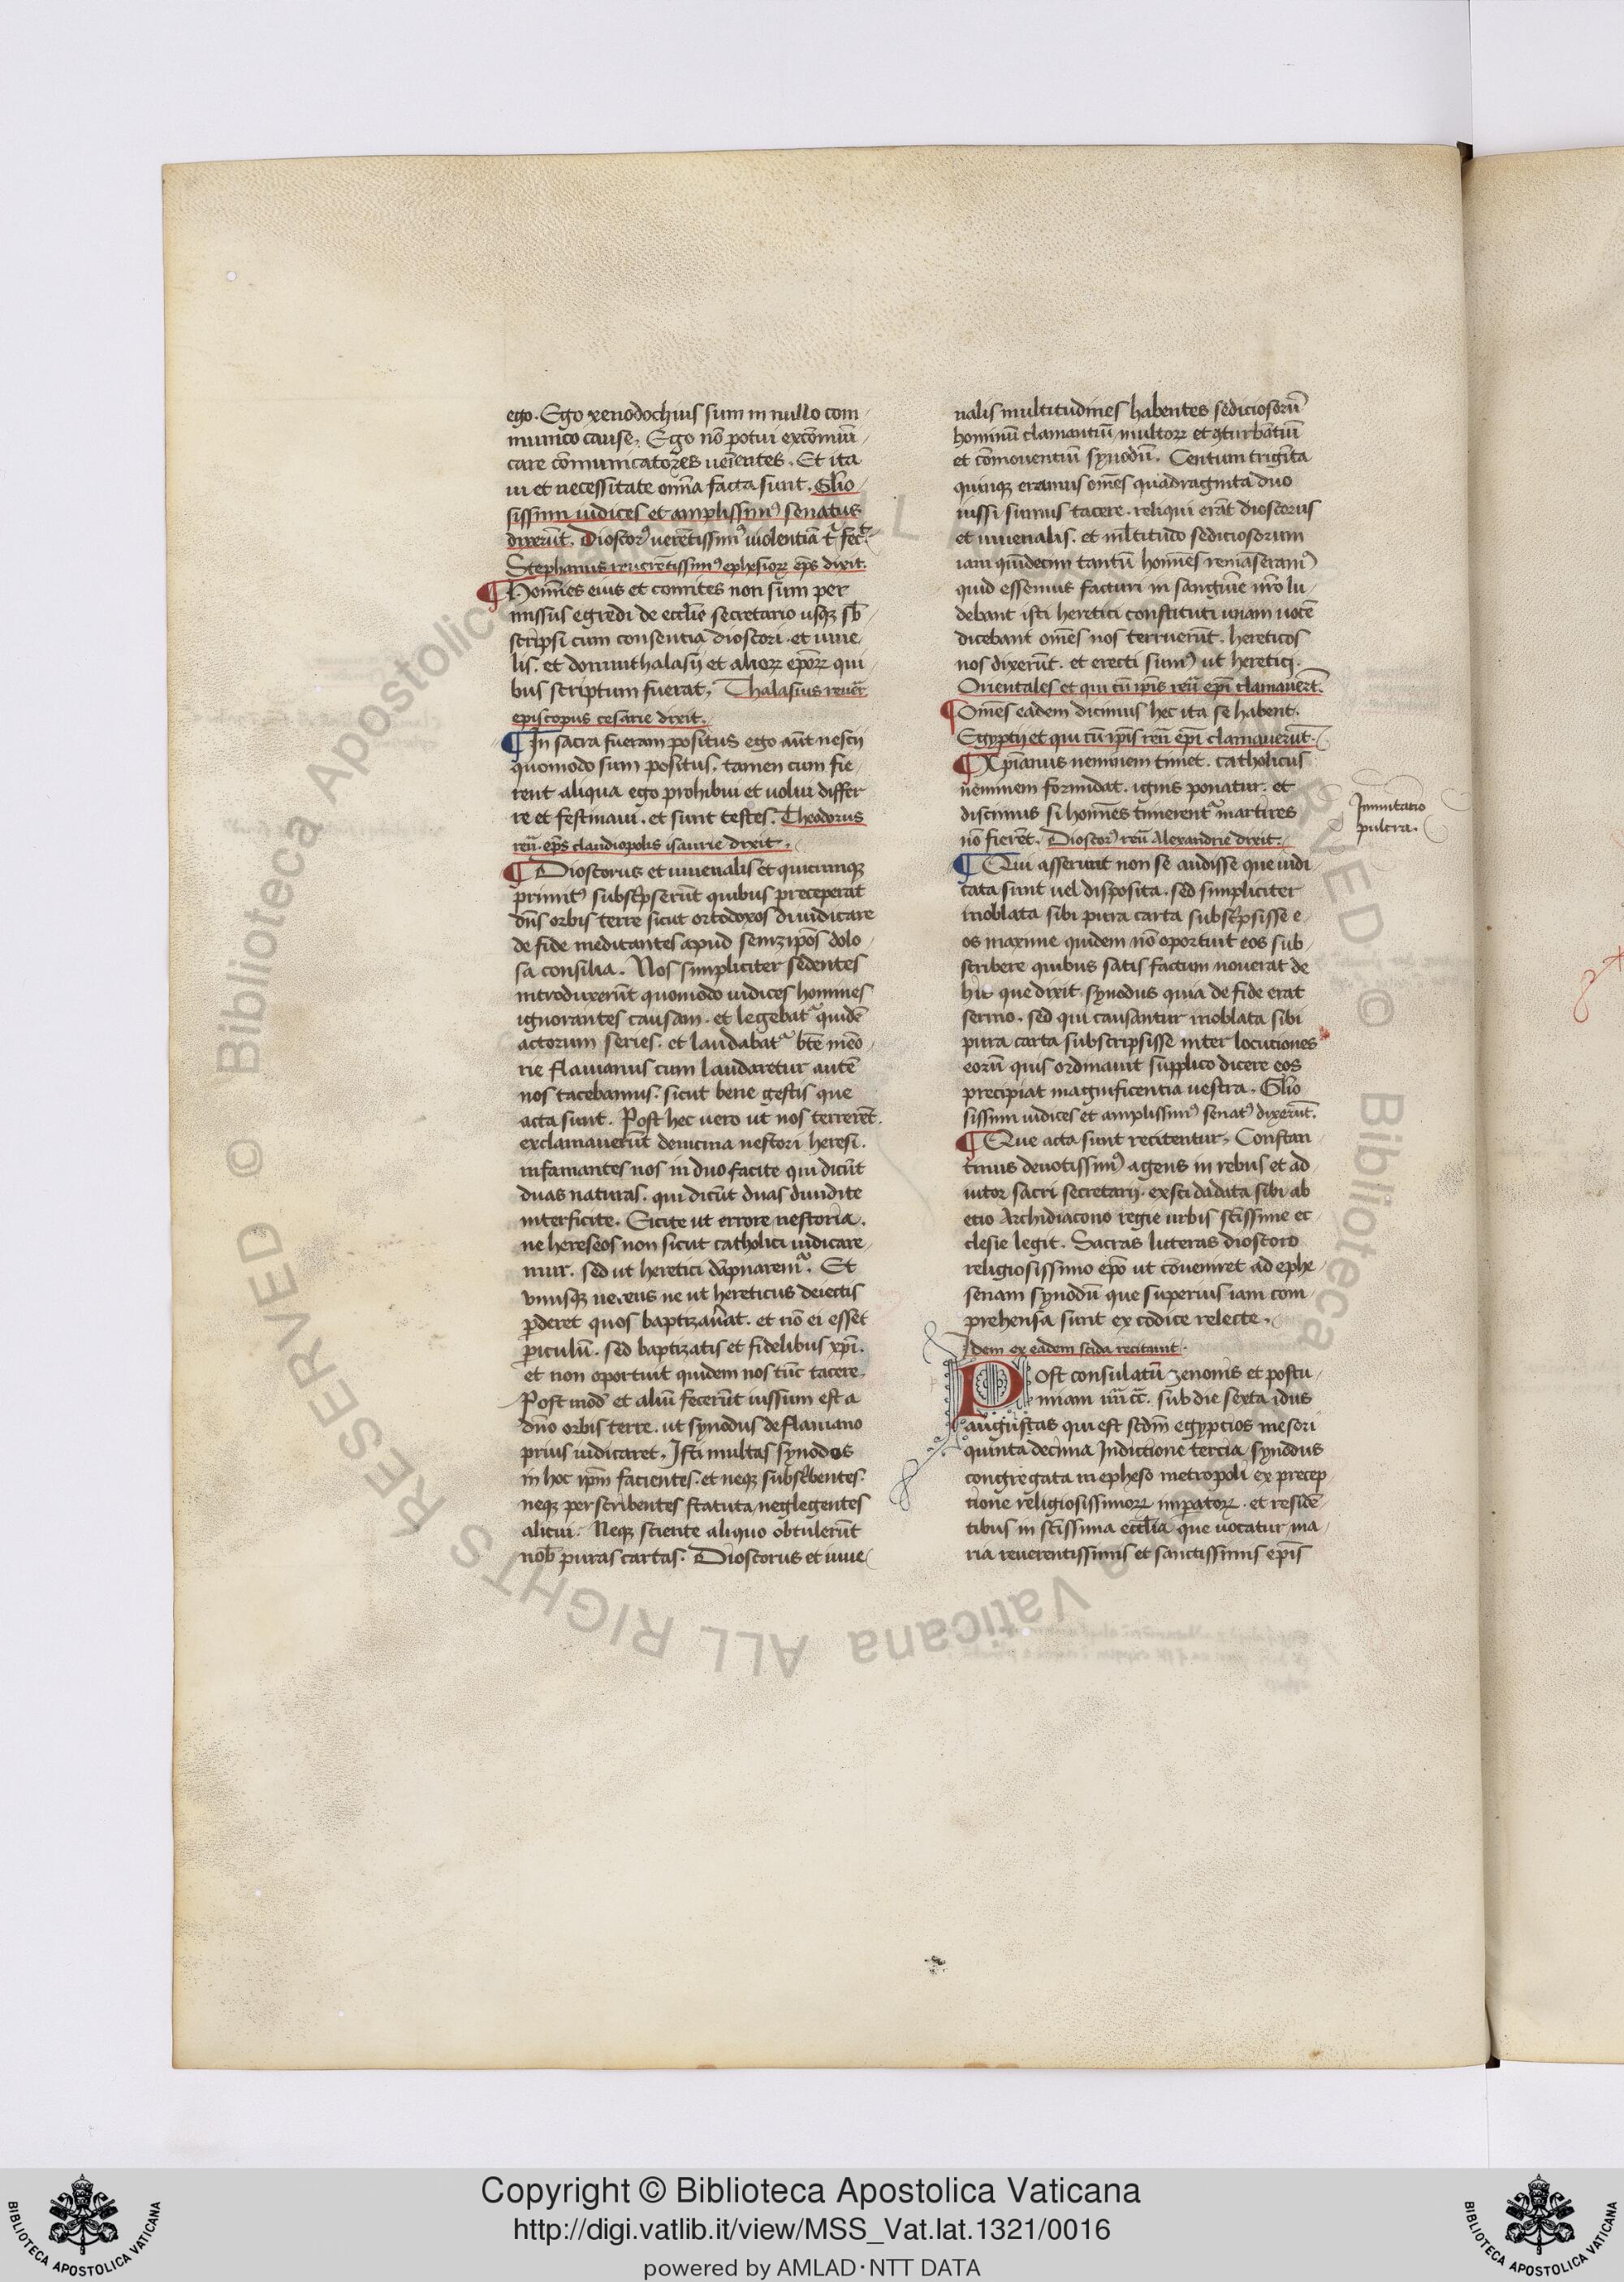 ego. Ego xenodochius sum in nullo com
munico cause. Ego nō potui excōmuni
care cōmunicatores uerentes. Et ita
ui et necessitate om̄ia facta sunt. Glīo
sissimi iudices et amplissimꝰ senatus
dixerūt. Dioscorꝰ uerētissimꝰ uiolentiā
Stephanus reuerētissimꝰ ephesioꝝ ep̄s dixit.
¶ Homīes eius et comites non sum per
missus egredi de eccl̄ie secretario usqꝫ sb̄
scripsi cum consentia dioscori. et iuue
lis. et domini thalasij et alioꝝ ep̄oꝝ qui
bus scriptum fuerat. Thalasius reuēr
episcopus cesarie dixit.
¶ In sacra fueram positus ego aūt nescij
quomodo sum positus. tamen cum fie
rent aliqua ego prohibui et uolui differ
re et festinaui. et sunt testes. Theodorus
reū. ep̄s claudiopolis isaurie dixit.
¶ Dioscorus et iuuenalis et quicunqꝫ
primitꝰ subscripserūt quibus preceperat
dn̄s orbis terre sicut ortodoxos diiudicare
de fide meditantes apud semꝫipōs dolo
sa consilia. Nos simpliciter sedentes
introduxerūt quomodo iudices homines
ignorantes causam. et legebatʳ quidē
actorum series. et laudabatʳ bt̄e meō
rie flauianus cum laudaretur autē
nos tacebamus. sicut bene gestis que
acta sunt. Post hec uero ut nos terrerēt.
exclamauerūt deuicina nestori heresi.
infamantes nos in duo facite qui dicūt
duas naturas. qui dicūt duas diuidite
interficite. Eicite ut errore nestoria.
ne hereseos non sicut catholici iudicare
mur. sed ut heretici dāpnaremꝰ. Et
vnusqꝫ uerens ne ut hereticus deiectis
ꝑderet quos baptizau̇at. et nō ei esset
ꝑiculū. sed baptizatis et fidelibus xp̄i.
et non oportuit quidem nos tūc tacere.
Post mod̄ et aliū fecerūt iussum est a
dn̄o orbis terre. ut synodus de flauiano
prius iudicaret. Isti multas synodos
in hoc ip̄m facientes. et neqꝫ subscribentes.
neqꝫ perscribentes statuta neglegentes
alicui. Neqꝫ sciente aliquo obtulerūt
nob̄ puras cartas. Dioscorus et iuue
nalis multitudines habentes sediciosorū
hominū clamantiū multoꝝ et ꝯturbātiū
et cōmouentiū synodū. Centum triginta
quinqꝫ eramus om̄es quadraginta duo
iussi sumus tacere. reliqui erāt dioscorus
et iuuenalis. et ml̄titudo sediciosorum
iam quīdecim tantū homīes remāseramꝰ
quid essemus facturi in sanguīe nr̄o lu
debant isti heretici constituti unam uocē
dicebant om̄es nos terruerūt. hereticos
nos dixerūt. et erecti sumꝰ ut heretici.
Orientales et qui cū ip̄is reū ep̄i clamauert̄.
¶ Om̄es eadem dicimus hec ita se habent.
Egyptij et qui cū ip̄is reū ep̄i clamauerūt.
¶ Xp̄ianus neminem timet. catholicus
neminem formidat. ignis ponatur. et
discimus si homīes timerentʳ martires
nō fierēt. Dioscorꝰ reū Alexandrie dixit.
¶ Qui asserunt non se audisse que iudi
cata sunt uel disposita. sed simpliciter
inoblata sibi pura carta subscripsisse e
os maxime quidem nō oportuit eos sub
scribere quibus satis factum nouerat de
hic que dixit synodus quia de fide erat
sermo. sed qui causantur inoblata sibi
pura carta subscripsisse inter locutiones
eorū quis ordinauit supplico dicere eos
precipiat magnificentia uestra. Glīo
sissimi iudices et amplissimꝰ senatꝰ dixerūt.
¶ Que acta sunt recitentur. Constan
tinus deuotissimꝰ agens in rebus et ad
iutor sacri secretarij. exsci dadata sibi ab
etio Archidiacono regie urbis sc̄issime ec
clesie legit. Sacras litteras dioscoro
religiosissimo ep̄o ut cōueniret ad ephe
senam synodū que superius iam com
prehensa sunt ex codice relecte.
Idem ex eadem scida recitauit.
Post consulatū zenonis et postu
miani . sub die sexta idus
augustas qui est scdm̄ egyptios mesori
quinta decima Indictione tercia synodus
congregata in epheso metropoli ex precep
tione religiosissimoꝝ imperatoꝝ. et residē
tibus in sc̄issima eccl̄ia que uocatur ma
ria reuerentissimis et sanctissimis ep̄is
pulcra.
Copyright © Biblioteca Apostolica Vaticana
http://digi.vatlib.it/view/MSS_Vat.lat.1321/0016
powered by AMLAD·NTT DATA
BIBLIOTECA APOSTOLICA VATICANA
BIBLIOTECA APOSTOLICA VATICANA
© Biblioteca Apostolica Vaticana ALL RIGHTS RESERVED